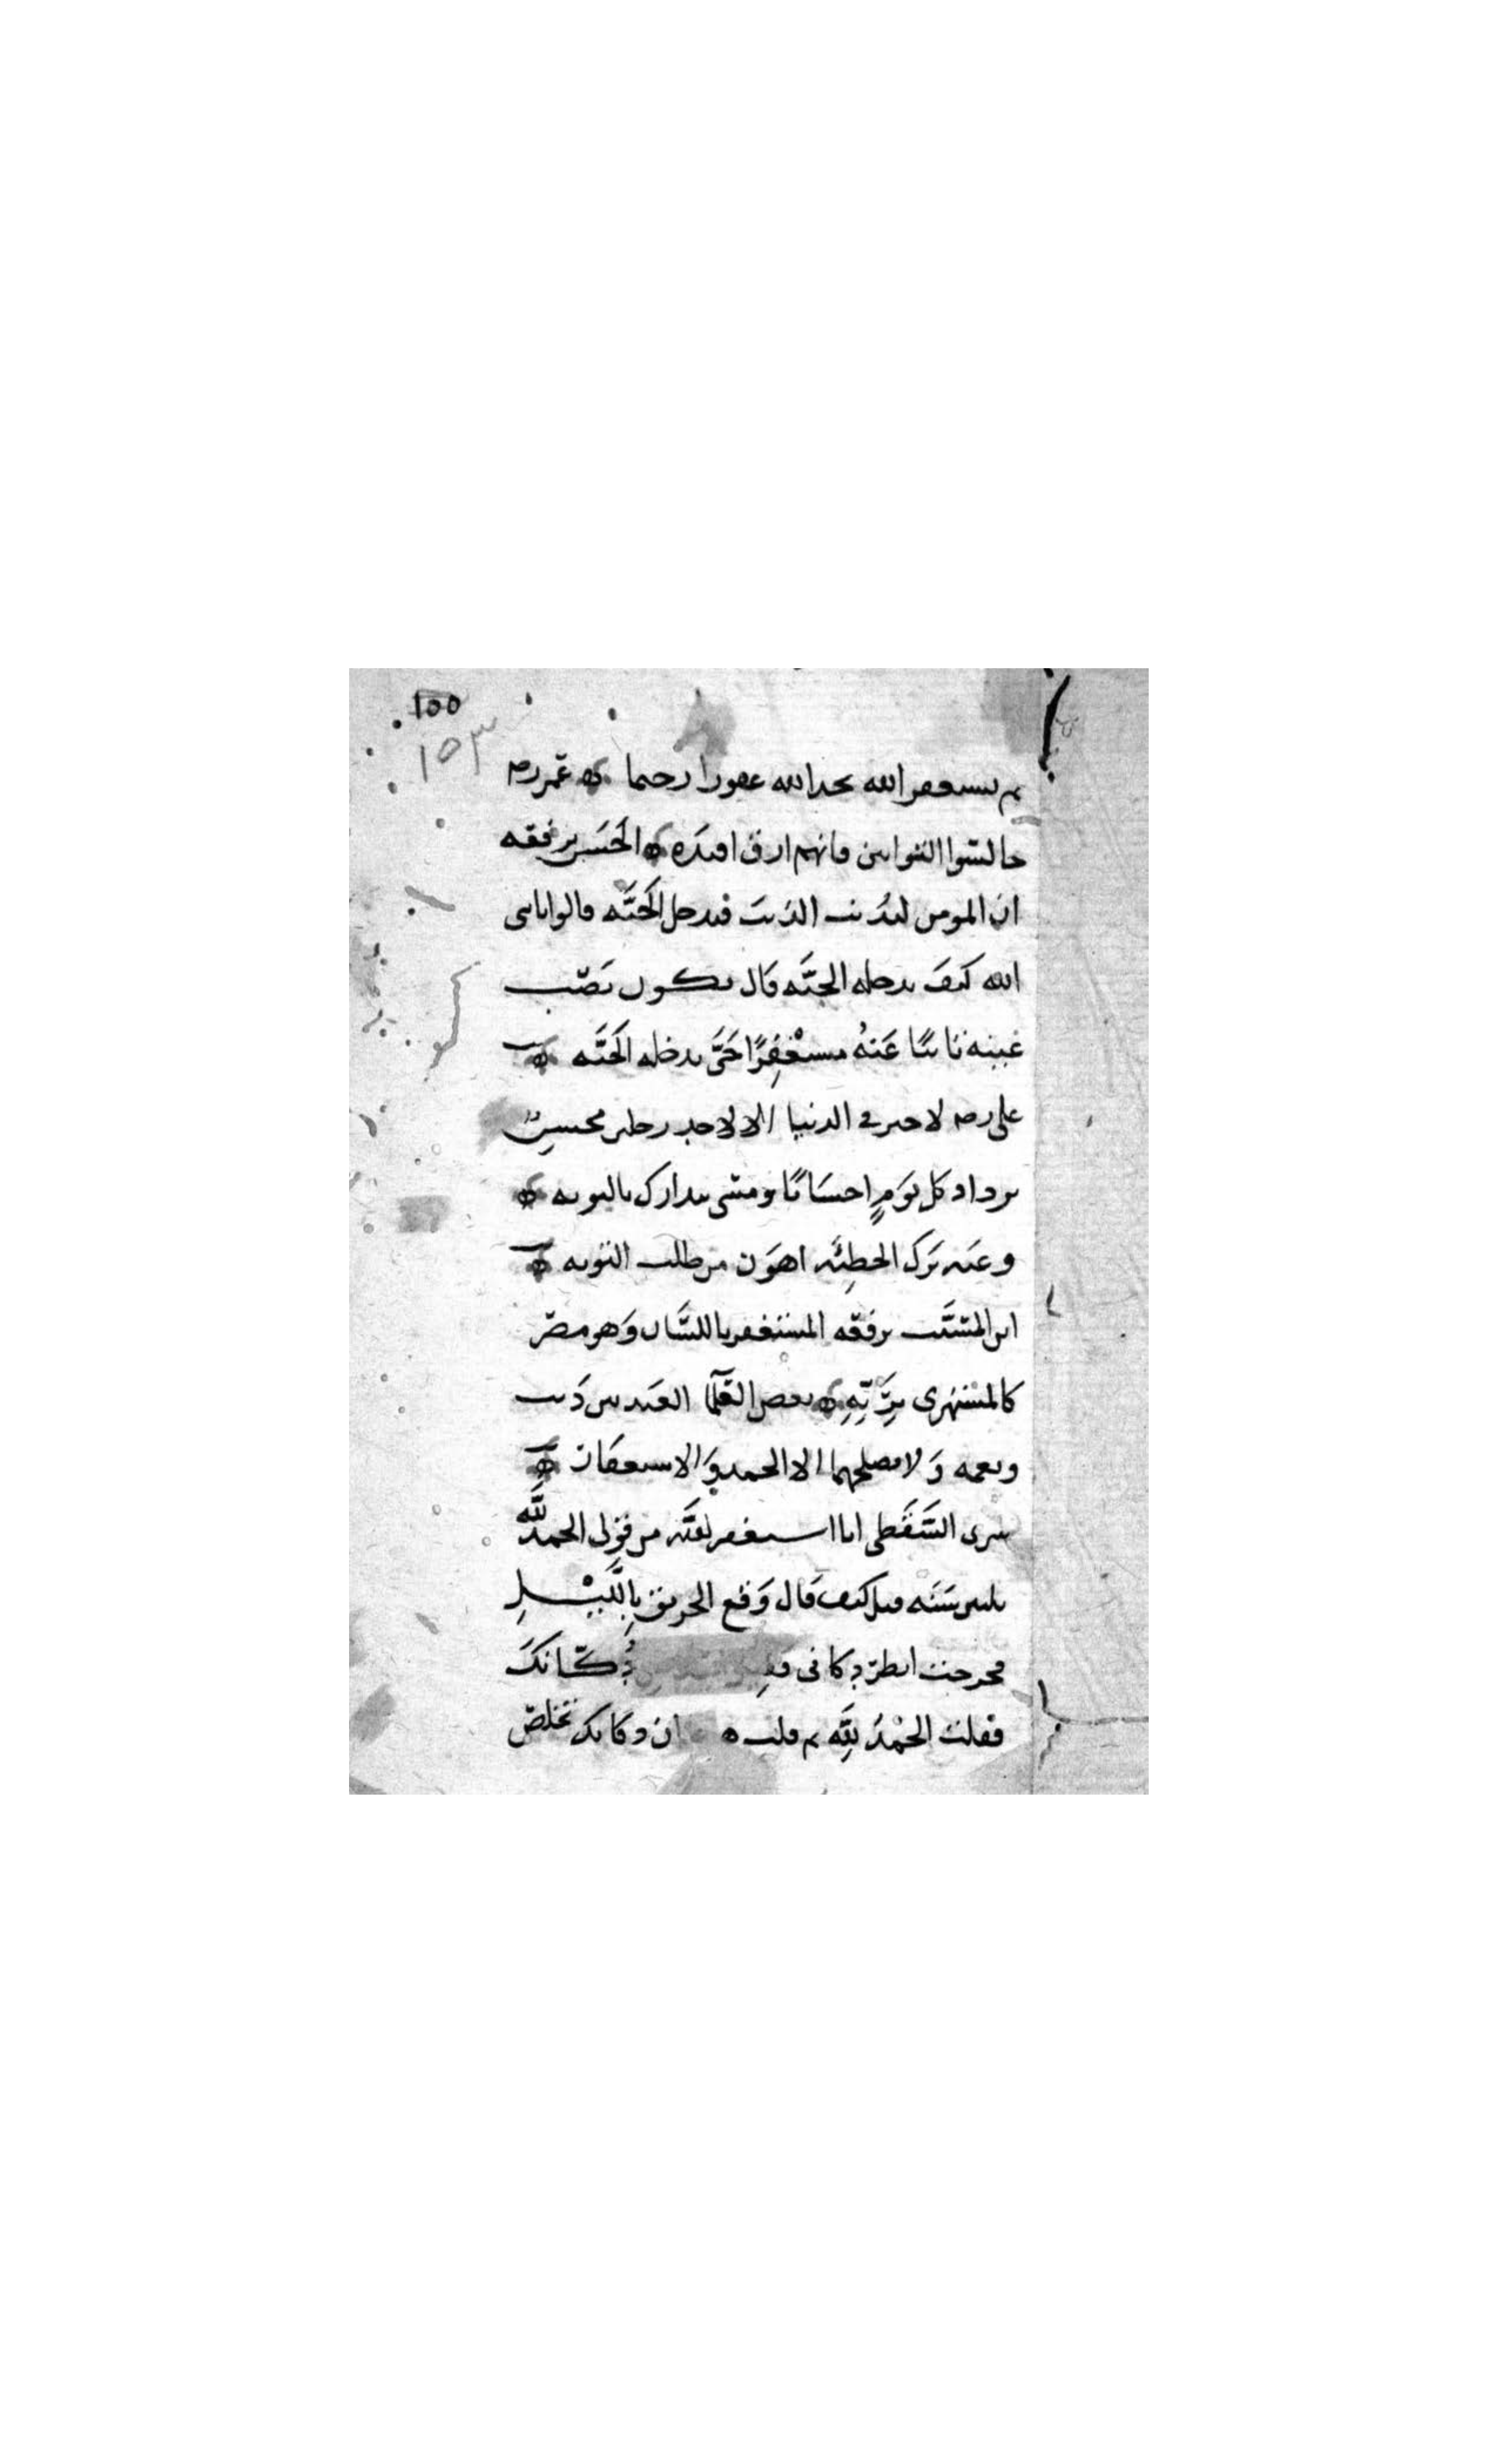 ١٥٥
١٥٣
ثم يستغفر الله يجد الله غفورا رحيما ه عمر رضه
جالسوا التوابين فانهم ارق افئدة ه الحسن يرفعه
ان المومن ليذنب الذنب فيدخل الجنّه قالوا يا نبى
الله كيفَ يدخله الجنّه قال يكون نصب
عينيه تائبًا عَنهُ مستغْفِرًا حَتَّى يدخله الجَنَّه ه
على رضه لا خير فى الدنيا الا لاحد رجلين محسنٍ
يزداد كل يَومٍ احسَانًا ومسئ يتدارك بالتوبه ه
وعَنه تَرك الخطِئَه اهوَن من طلب التوبه ه
ابن المسَيَّب يرفعه المستغفر باللسَان وَهو مصرّ
كالمستهزى بِرَبِّهِ ه بعض العُلَما العَبد بين ذَنب
ونعمه وَلا يصلحهما الا الحمد وَالاستغفار ه
سرى السَّقَطى انا استغفر الله من قولى الحمد لله
ثلثين سَنَه قيل كيف قال وَقع الحريق بِاللَّيْلِ
فخرجت انظر دكانى فقيل دُكّانكَ
فقلت الحَمْدُ لِلَّه ثم قلت ه ان دكانك تخلصّ